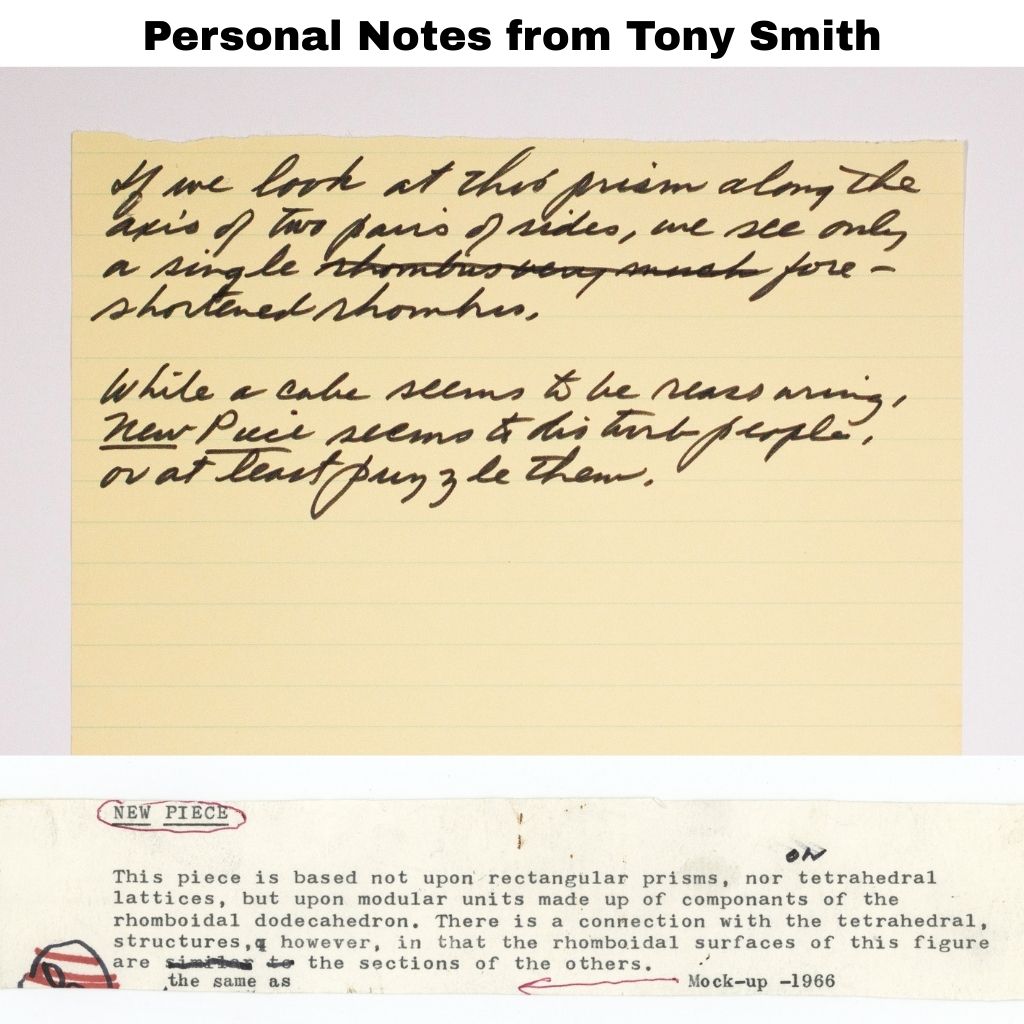 Personal Notes from Tony Smith
If we look at this prism along the
axis of two pairs of sides, we see only
a single rhombus very much fore-
shortened rhombus.
While a cube seems to be reassuring,
New Piece seems to disturb people,
or at least puzzle them.
NEW PIECE
on
This piece is based not upon rectangular prisms, nor tetrahedral
lattices, but upon modular units made up of componants of the
rhomboidal dodecahedron. There is a connection with the tetrahedral,
structures, however, in that the rhomboidal surfaces of this figure
are similar to the sections of the others.
the same as
Mock-up -1966